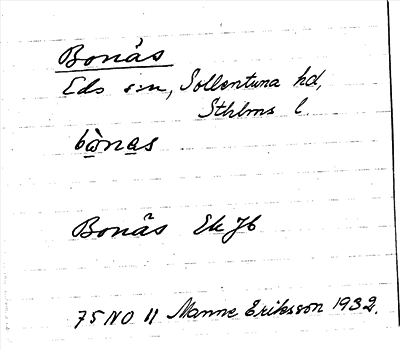 Bonäs
Eds sn, Sollentuna hd,
Sthlms l.
bὼnas
Bonäs Ek Jb
75 NO 11 Manne Eriksson 1932.